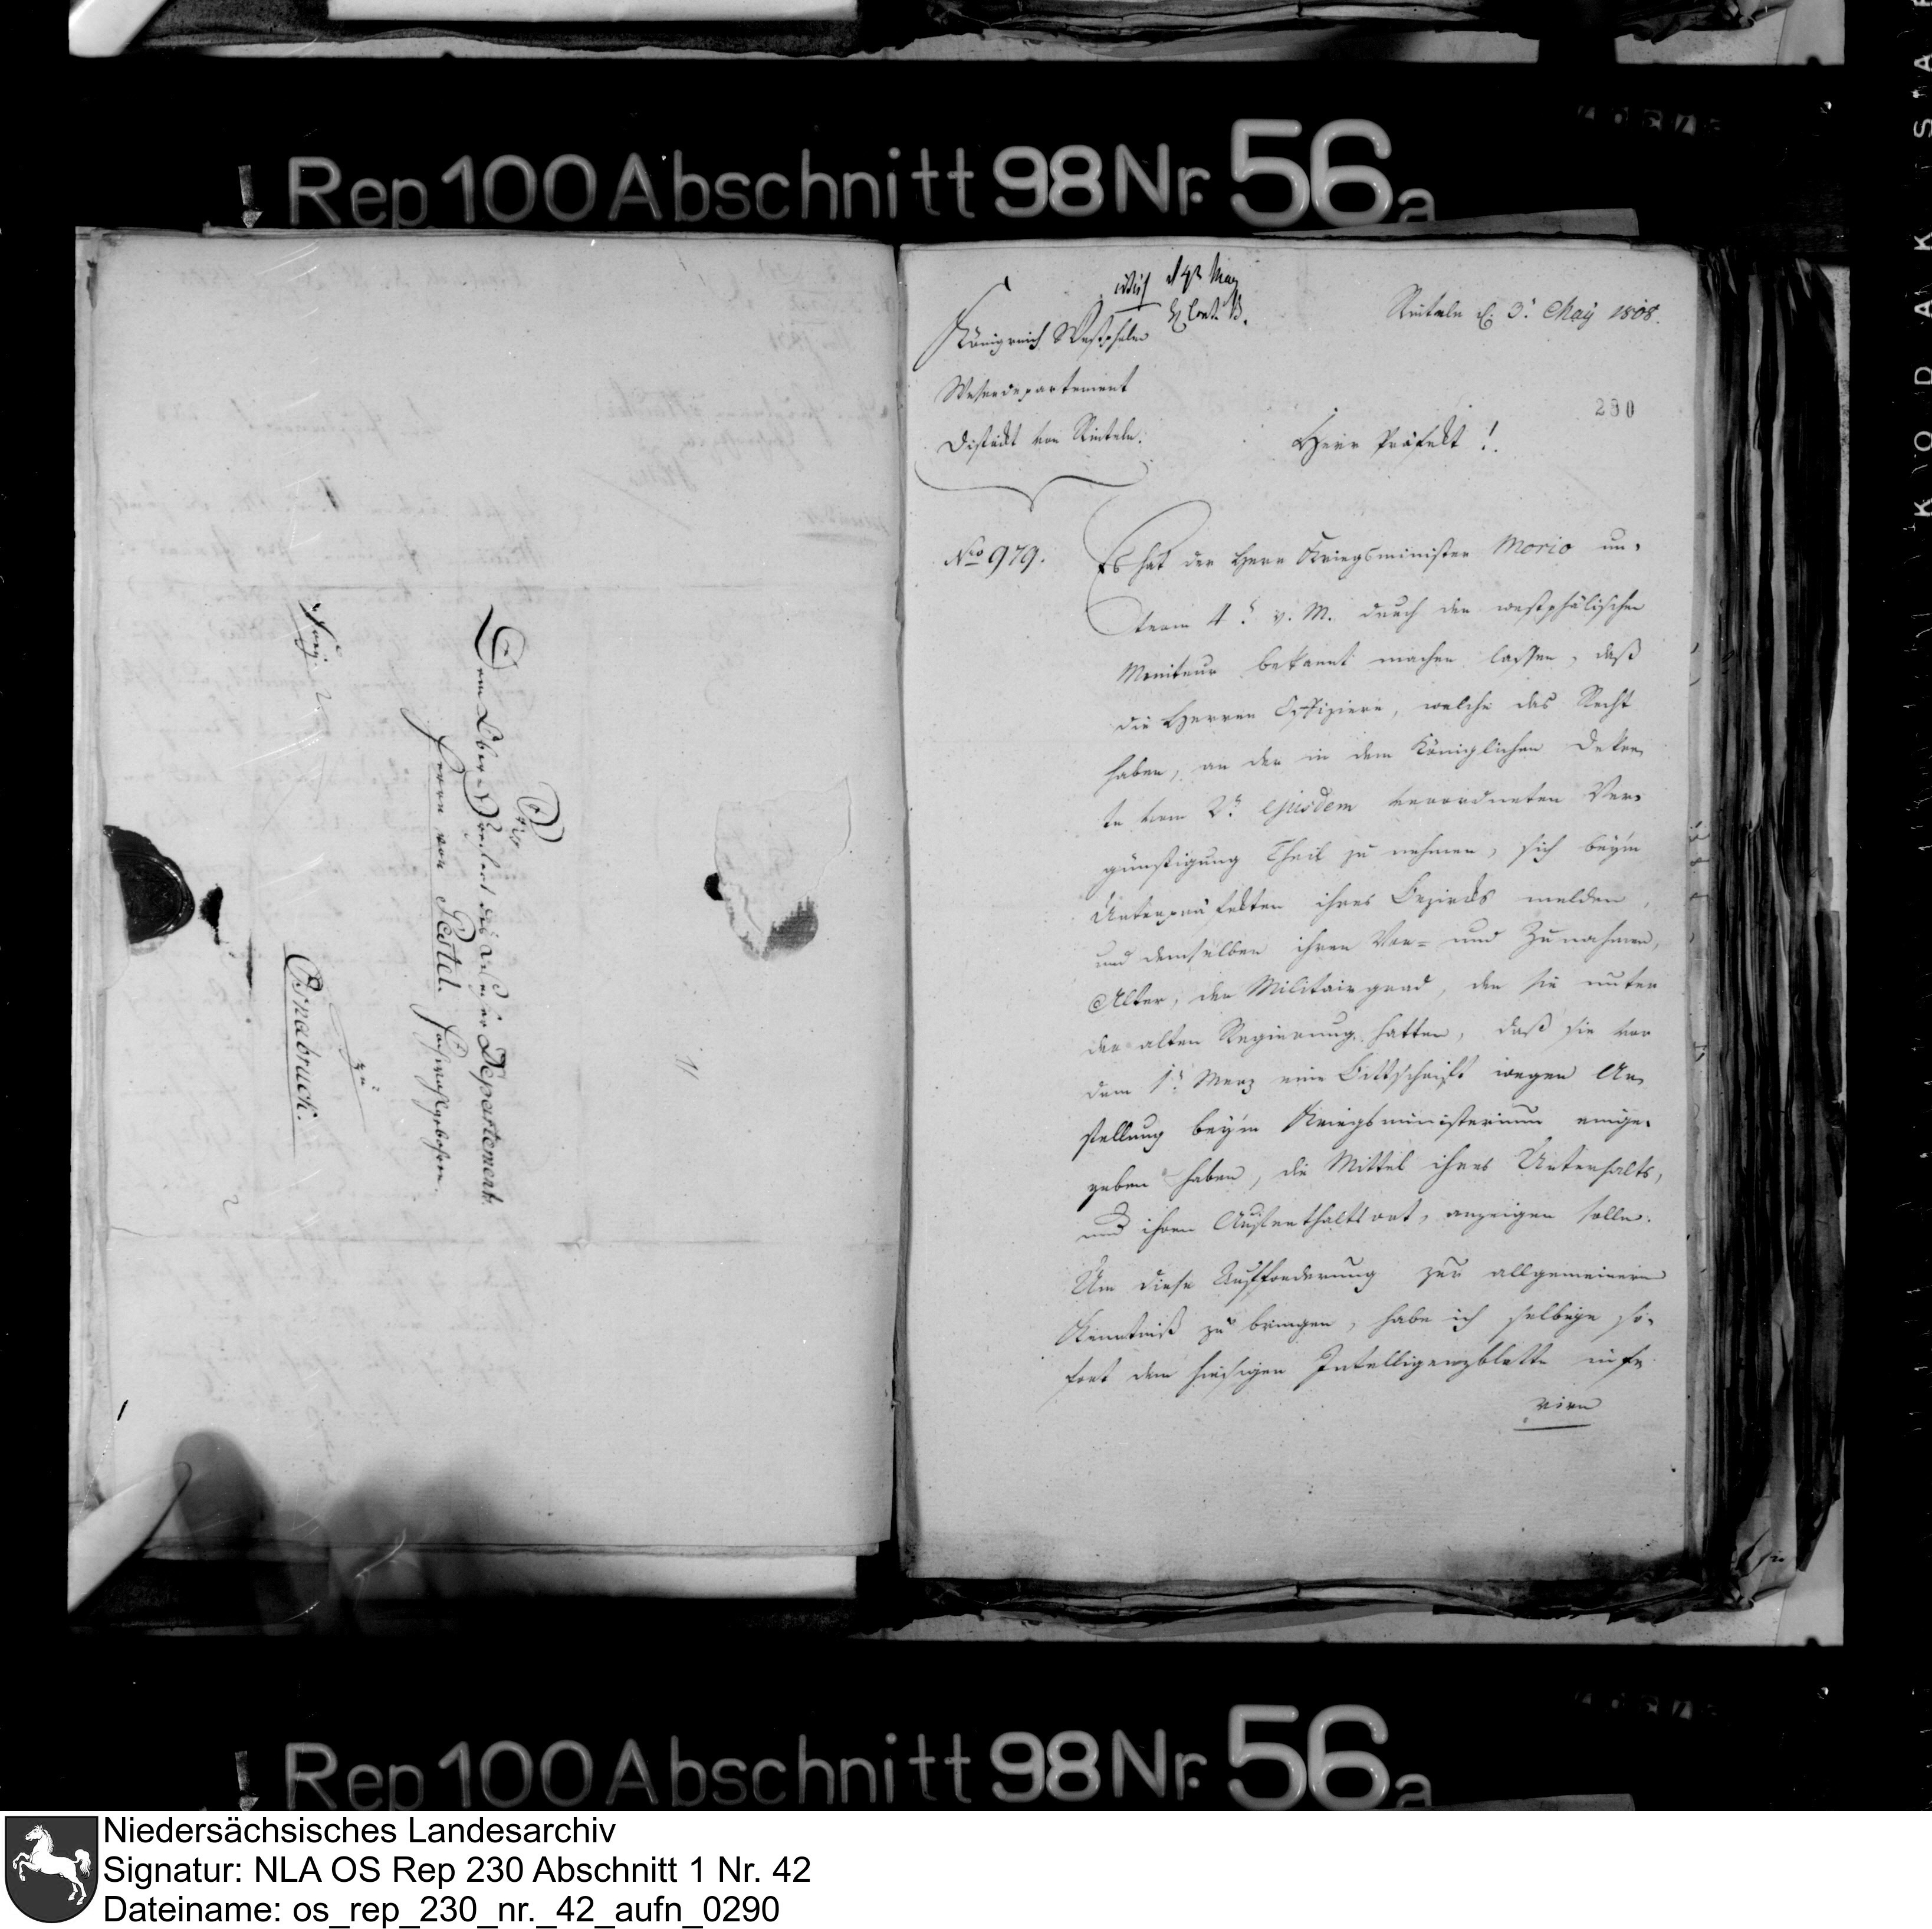 ! Rep 100 Abschnitt 98 Nr. 56a
Dem Ober Präfect des Weser Departement
Herrn von Pestel. Hochwohlgeboren.
zu
Osnabruck.
d 4t May
Rinteln d. 3t May 1808.
Königreich Westphalen
Weserdepartement
District von Rinteln.
290
Herr Präfekt!
No 979.
Es hat der Herr Kriegsminister Morio un-
term 4t v. M. durch den westphälischen
Moniteur bekannt machen lassen, daß
die Herren Offiziere, welche das Recht
haben, an der in dem Königlichen Dekre,
te vom 2t ejusdem verordneten Ver-
günstigung Theil zu nehmen, sich beym
Unterpräfekten ihres Bezirks melden,
und demselben ihren Vor- und Zunahmen,
Alter, den Militairgrad, den sie unter
der alten Regierung hatten, daß sie vor
dem 1t Merz eine Bittschrift wegen An,
stellung beym Kriegsministerium einge-
geben haben, die Mittel ihres Unterhalts,
und ihren Aufenthaltsort, anzeigen sollen.
Um diese Aufforderung zur allgemeinern
Kenntniß zu bringen, habe ich selbige so-
fort dem hiesigen Intelligenzblatte inse
riren
! Rep 100 Abschnitt 98 Nr. 56a
Niedersächsisches Landesarchiv
Signatur: NLA OS Rep 230 Abschnitt 1 Nr. 42
Dateiname: os_rep_230_nr._42_aufn_0290